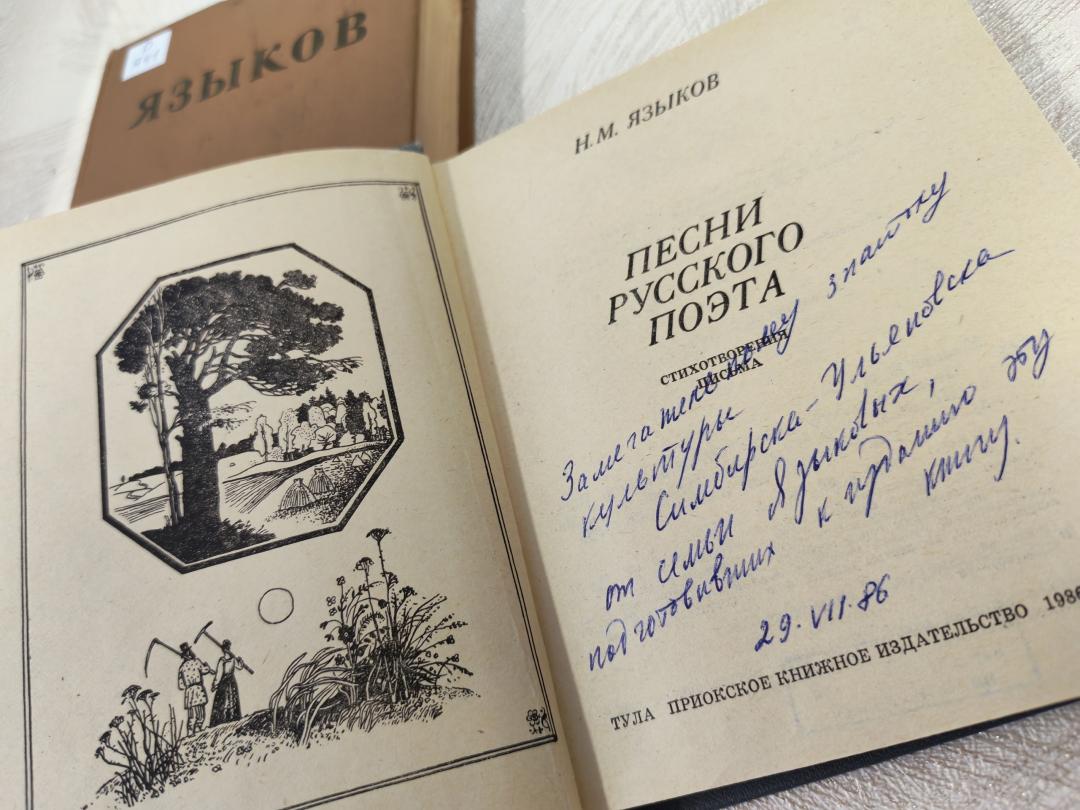 ЯЗЫКОВ
Н.М. ЯЗЫКОВ
ПЕСНИ
РУССКОГО
ПОЭТА
СТИХОТВОРЕНИЯ
ПИСЬМА
Замечательному знатоку
культуры
Симбирска-Ульяновска
от семьи Языковых,
подготовивших к изданию эту
книгу.
29.VII.86
ТУЛА ПРИОКСКОЕ КНИЖНОЕ ИЗДАТЕЛЬСТВО 1986